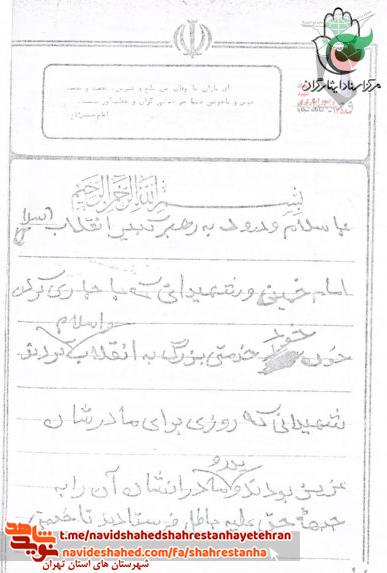 مرکز اسناد ایثارگران
ای یاران با وفای من تلخ و شیرین
امام خمینی
بسم الله الرحمن الرحیم
با سلام و درود به رهبر کبیر انقلاب اسلامی
امام خمینی و شهیدانی که با جاری کردن
خون خود خدمتی بزرگ به انقلاب و اسلام کردند
شهیدانی که روزی برای مادرشان
عزیز بودند و پدر و مادرانشان آن را به
جبهه حق علیه باطل فرستادند تا
نوید شاهد
t.me/navidshahedshahrestanhayetehran
navideshahed.com/fa/shahrestanha
شهرستان های استان تهران